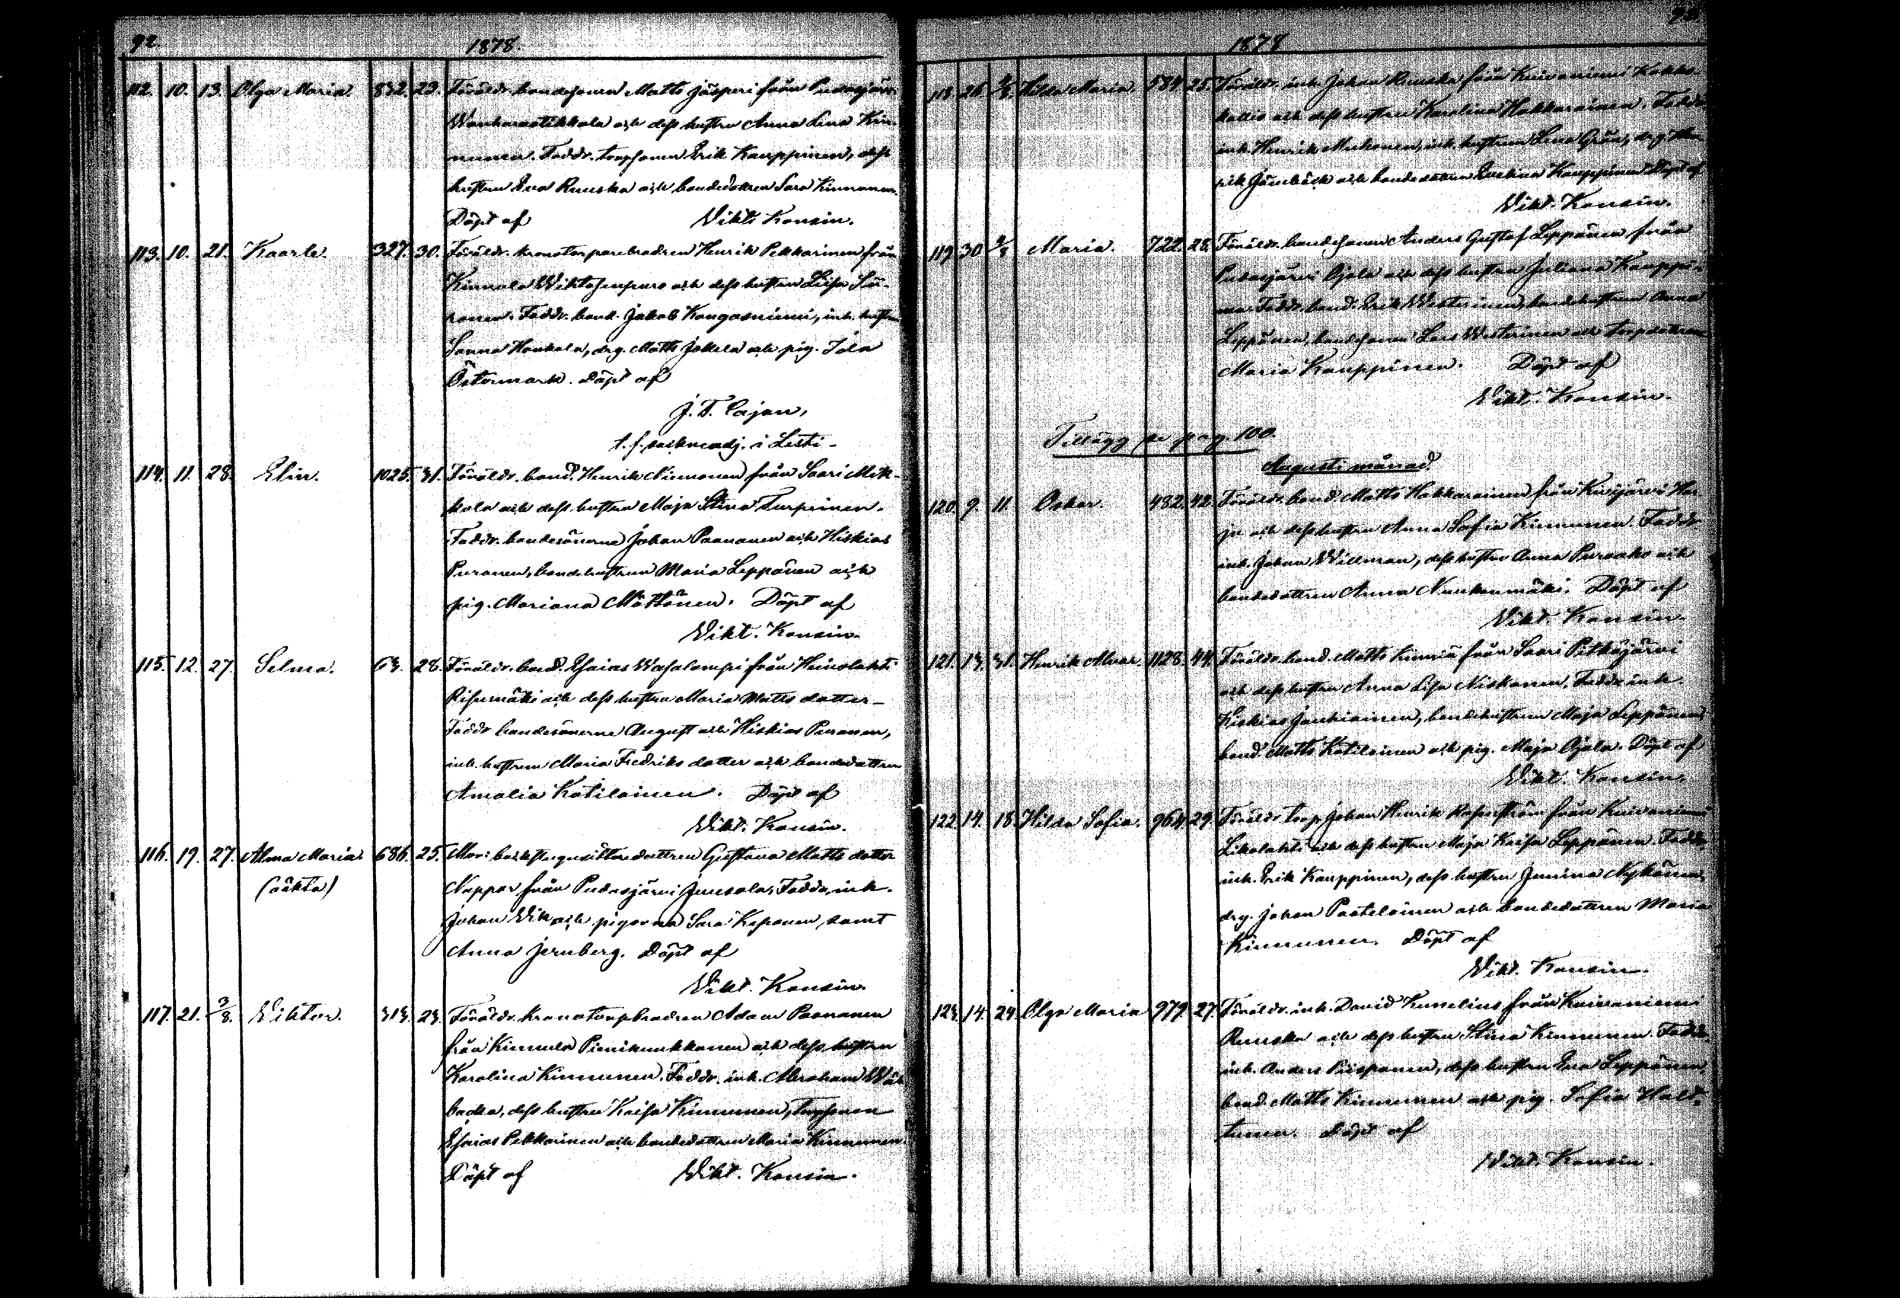 92.
1878.
112. 10. 13. Olga Maria. 832. 23. Föräldr. bondesonen Matts Jäsperi från Pudasjärvi
Wanharaatikkala och dess hustru Anna Lena Kin-
nunen. Faddr. torpsonen Erik Kauppinen, dess
hustru Eva Ruuska och bondedottren Sara Kinnunen.
Döpt af Vikt. Konsin.
113. 10. 21. Kaarle. 327. 30. Föräldr. kronotorparebrodren Henrik Pekkarinen från
Kinnula och dess hustru Liisa
Faddr. bond. Jakob Kangasniemi, inh. hustru
Sanna Honkala, drg. Matts Jokela och pig. Ida
Östermark. Döpt af
J. T. Cajan,
t. f. sockneadj. i Lesti-
114. 11. 28. Elin. 1025. 31. Föräldr. bond. Henrik Niemonen från Saari Mik-
kola och dess hustru Maja Stina Turpeinen.
Faddr. bondesönerne Johan Paananen och Hiskias
Puranen, bondehustrun Maria Leppänen och
pig. Mariana Möttönen. Döpt af
Vikt. Konsin.
115. 12. 27. Selma. 63. 28. Föräldr. bond. Esaias Wasalampi från Heinolahti
Risumäki och dess hustru Maria Matts dotter-
Faddr. bondesönerne August och Hiskias Puranen,
inh. hustrun Maria Fredriks dotter och bondedottren
Amalia Kotilainen. Döpt af
Vikt. Konsin.
116. 19. 27. Alma Maria 686. 25. Mor: backstugusittaredottren Gustava Matts dotter
(oäkta) Noppar från Pudasjärvi Jussola, Faddr. inh.
Johan Wik och pigorna Sara Kaponen samt
Anna Jernberg. Döpt af
Vikt. Konsin.
117. 21. 3/8. Wiktor. 313. 23. Föräldr. kronotorpbrodren Adam Paananen
från Kinnula Pienikuukkanen och dess hustru
Karolina Kinnunen. Faddr. inh. Abraham
dess hustru Kaisa Kinnunen, torpsonen
Esaias Pekkarinen och bondedottren Maria Kinnunen
Döpt af Vikt. Konsin.
93
1878
118. 26. 2/8. Hilda Maria. 584. 25. Föräldr. inh. Johan Ruuska från Kuivaniemi Kokko-
kallio och dess hustru Karolina Hakkarainen. Faddr.
inh. Henrik Muhonen, inh. hustrun Lena Grön, drg.
och bondedottren Eveliina Kauppinen Döpt af
Vikt. Konsin.
119. 30. 3/8 Maria. 722. 28. Föräldr. bondesonen Anders Gustaf Leppänen från
Pudasjärvi Ojala och dess hustru Juliana Kauppi-
nen. Faddr. bond. Erik Westerinen, bondehustrun Anna
Leppänen, bondesonen Lars Westerinen och torpdottren
Maria Kauppinen. Döpt af
Vikt. Konsin.
Tillägg se pag. 100.
Augusti månad.
120. 9. 11. Oskar. 482. 42. Föräldr. bond. Matts Hakkarainen från Kivijärvi Har-
ju och dess hustru Anna Sofia Kinnunen. Faddr.
inh. Johan Willman, dess hustru Anna Pursako och
bondedottren Anna Naukanmäki. Döpt af
Vikt. Konsin.
121. 13. 31. Henrik Alvar. 1128. 44. Föräldr. bond. Matts Kinniä från Saari Pitkäjärvi
och dess hustru Anna Lisa Niskanen. Faddr. inh.
Hiskias Jauhiainen, bondehustrun Maja Leppänen
bond. Matts Kotilainen och pig. Maja Ojala. Döpt af
Vikt. Konsin.
122. 14. 18. Hilda Sofia. 964. 29. Föräldr. torp. Johan Henrik från Kuivaniemi
Likolahti och dess hustru Maja Kaisa Leppänen. Faddr.
inh. Erik Kauppinen, dess hustru Jemina Nykänen,
drg. Johan Paatelainen och bondedottren Maria
Kinnunen. Döpt af
Vikt. Konsin.
123. 14. 24. Olga Maria 979. 27. Föräldr. inh. David Kumelius från Kuivaniemi
Ruuska och dess hustru Stina Kinnunen. Faddr.
inh. Anders Piispanen, dess hustru Eva Leppänen,
bond. Matts Kinnunen och pig. Sofia Halt-
tunen. Döpt af
Vikt. Konsin.